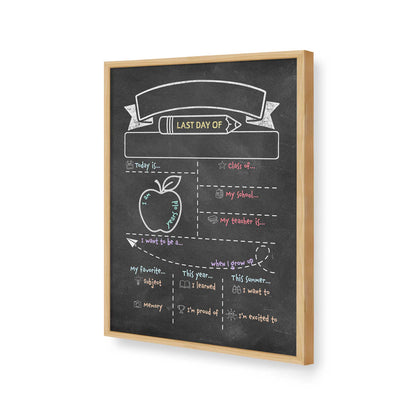 LAST DAY OF
Today is...
Class of...
I am
years old
My school...
My teacher is...
I want to be a...
when I grow up
My favorite...
This year...
This summer...
Subject
I learned
I want to
Memory
I'm proud of
I'm excited to